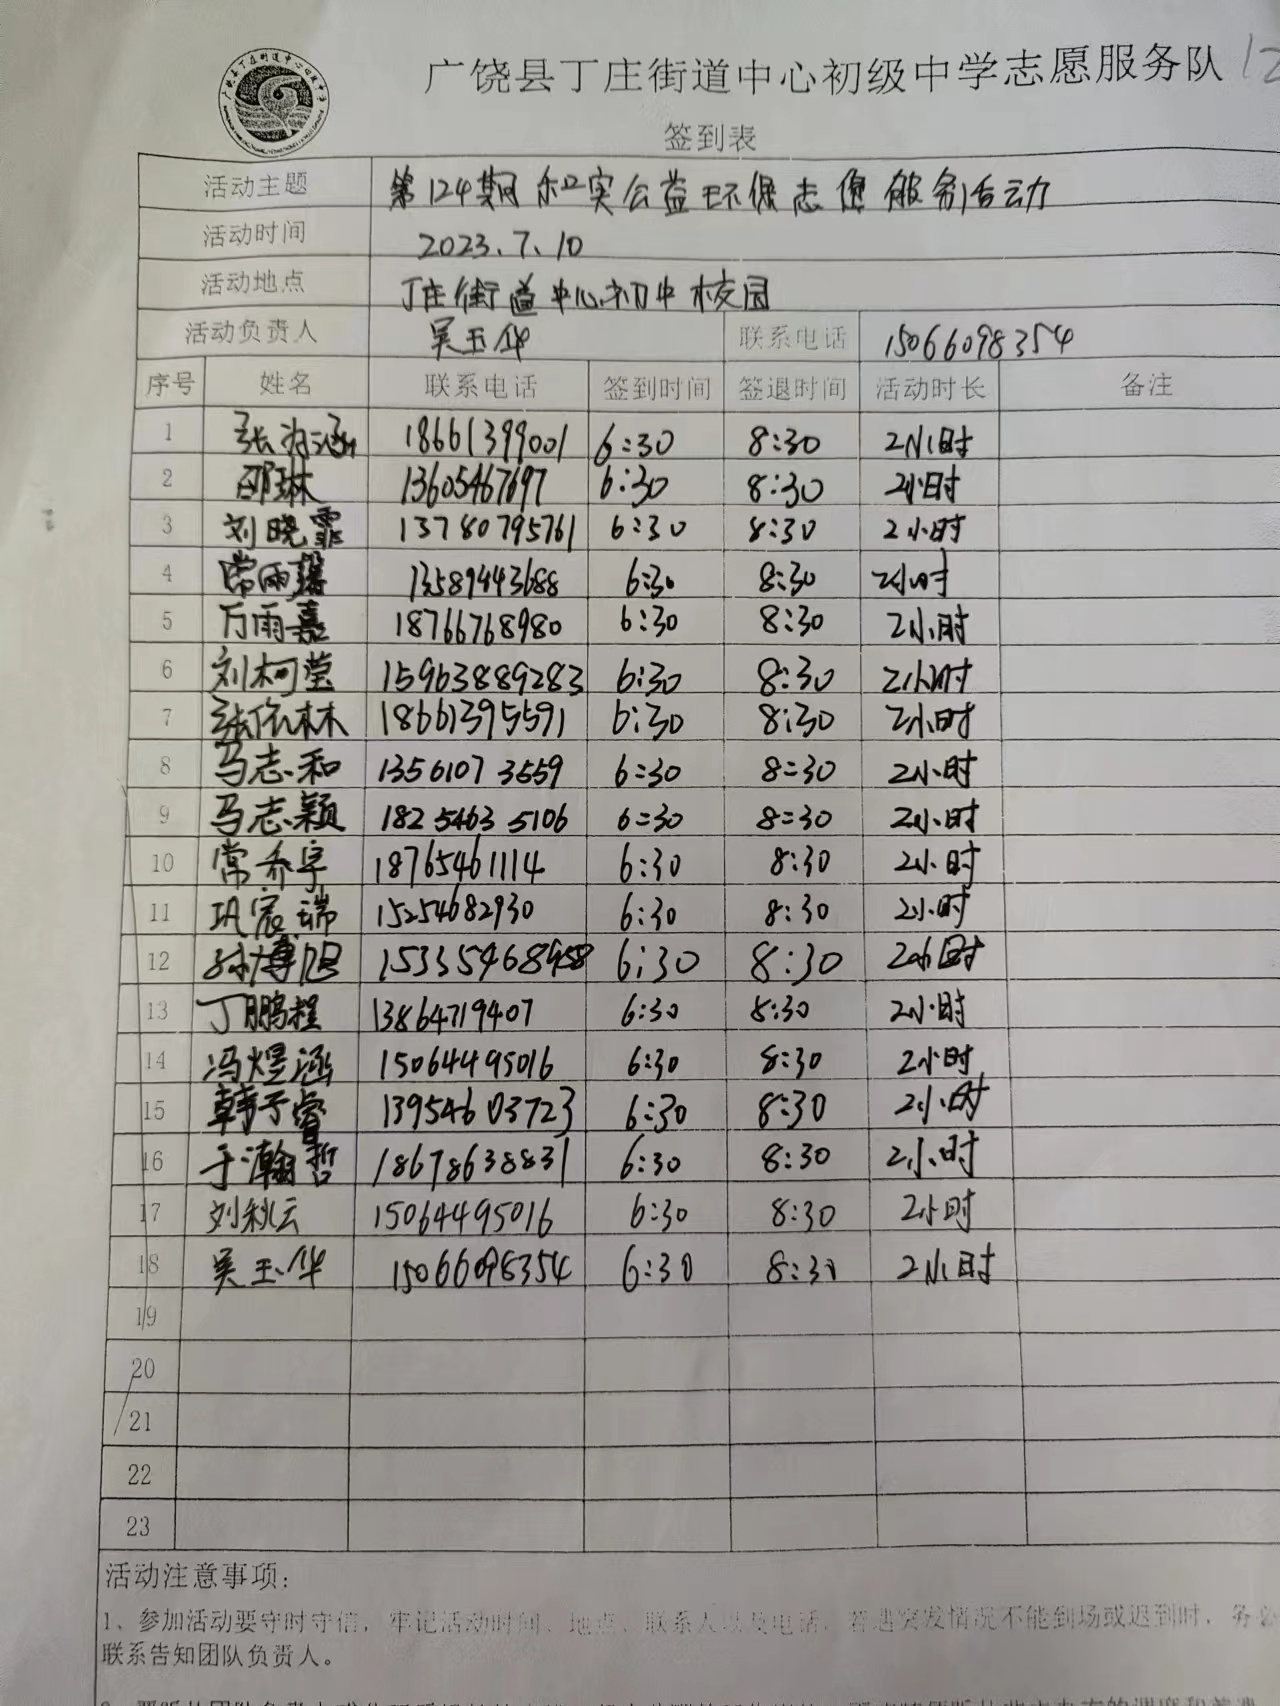 广饶县丁庄街道中心初级中学志愿服务队 12
签到表
活动主题 第124期 和实公益环保志愿服务活动
活动时间 2023.7.10
活动地点 丁庄街道中心初中校园
活动负责人 吴玉华 联系电话 15066098354
序号 姓名 联系电话 签到时间 签退时间 活动时长 备注
1 18661399001 6:30 8:30 2小时
2 邵琳 13605467697 6:30 8:30 2小时
3 刘晓霏 13780795761 6:30 8:30 2小时
4 常雨 13589443688 6:30 8:30 2小时
5 万雨嘉 18766768980 6:30 8:30 2小时
6 刘柯莹 15963889283 6:30 8:30 2小时
7 张依林 18661395591 6:30 8:30 2小时
8 马志和 13561073559 6:30 8:30 2小时
9 马志颖 18254635106 6:30 8:30 2小时
10 常乔宇 18765461114 6:30 8:30 2小时
11 巩宸瑞 15254682930 6:30 8:30 2小时
12 孙博旭 6:30 8:30 2小时
13 丁鹏程 13864719407 6:30 8:30 2小时
14 冯煜涵 15064495016 6:30 8:30 2小时
15 韩子睿 13954603723 6:30 8:30 2小时
16 于瀚哲 18678638831 6:30 8:30 2小时
17 刘秋云 15064495016 6:30 8:30 2小时
18 吴玉华 15066098354 6:30 8:30 2小时
19
20
21
22
23
活动注意事项：
1、参加活动要守时守信，牢记活动时间、地点、联系人以及电话，若遇突发情况不能到场或迟到时，务必
联系告知团队负责人。